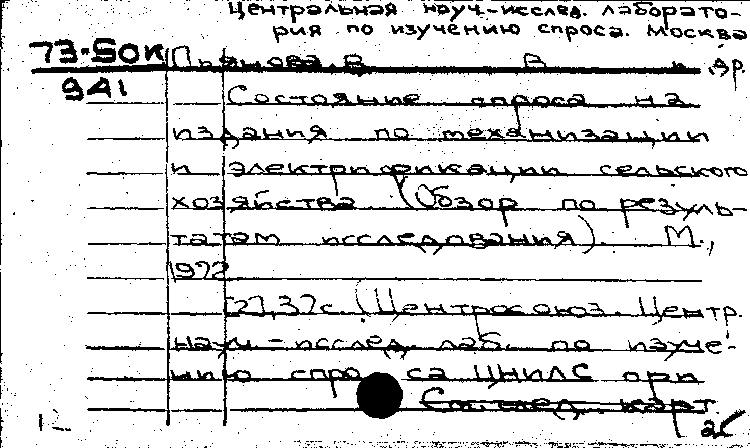 Центральная науч.-исслед. лаборато-
рия по изучению спроса. Москва
73-50к
В. и др.
941
Состояние спроса на
издания по механизации
и электрификации сельского
хозяйства. (Обзор по резуль-
татам исследования). М.,
1972
[2], 37 с. (Центросоюз. Центр.
науч.-исслед. лаб. по изуче-
нию спроса ЦНИЛС при
См. след. карт.